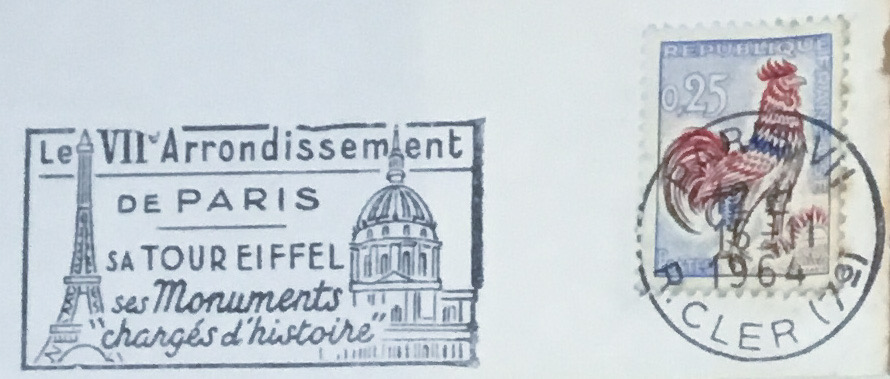 Le VIIe Arrondissement
DE PARIS
SA TOUR EIFFEL
ses Monuments
"chargés d'histoire"
REPUBLIQUE
0,25
PARIS VII
16 - 1
1964
R. CLER (7e)